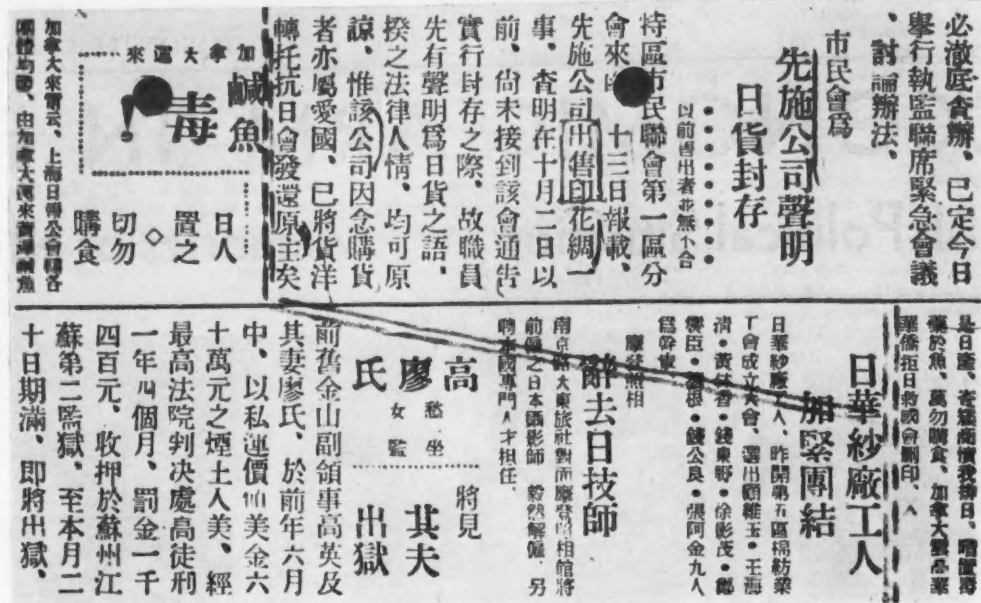 必澈底查辦、已定今日
舉行執監聯席緊急會議
、討論辦法、
市民會爲
先施公司聲明
日貨封存
以前售出者並無不合
特區市民聯會第一區分
會來 十三日報載、
先施公司出售印花綢一
事、查明在十月二日以
前、尚未接到該會通告
實行封存之際、故職員
先有聲明爲日貨之語、
揆之法律人情、均可原
諒、惟該公司因念購貨
者亦屬愛國、已將貨洋
轉托抗日會發還原主矣
加拿大運來
鹹魚
毒!
日人
置之
◇
切勿
購食
加拿大來電云、上海日報公會轉各
團體均鑒、由加拿大運來首埠鹹魚
是日產、奇猛商憤我排日、暗置毒
藥於魚、萬勿購食、加拿大雲高華
華僑拒日救國會刪印、
日華紗廠工人
加緊團結
日華紗廠工人、昨開第五區棉紡業
工會成立大會、選出顧雞玉・王海
清・黃林香・錢東野・徐影茂・鄭
根・錢公良・張阿金九人
爲幹事
摩登照相
辭去日技師
南京路大東旅社對面摩登照相館將
前僱之日本攝影師 毅然解僱、另
聘本國專門人才担任、
高廖氏
愁坐女監
將見
其夫出獄
前舊金山副領事高英及
其妻廖氏、於前年六月
中、以私運價值美金六
十萬元之煙土入美、經
最高法院判决處高徒刑
一年四個月、罰金一千
四百元、收押於蘇州江
蘇第二監獄、至本月二
十日期滿、即將出獄、